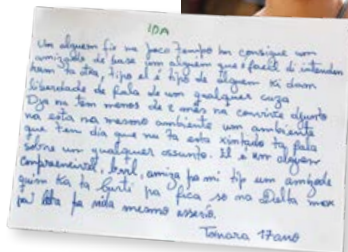 IDA
Um alguem fix na poco tempo im consigue um
amizade de base im alguem que é facil di intenden
ham ta dxa, tipo el é tipo de algem ki dam
liberdade de fala de um qualquer cuza
Dja na tem menos de 2 mês na convive djunto
na esta na mesmo ambiente um ambiente
que tem dia que no ta esta xintado ta fala
sobre un qualquer assunto. El é um alguem
compreensivel, bril, amiga pa mi tip um amizade
quim ka ta curti pa fica so na Delta max
pa vida mesmo asserio.
Tamara 17 ano